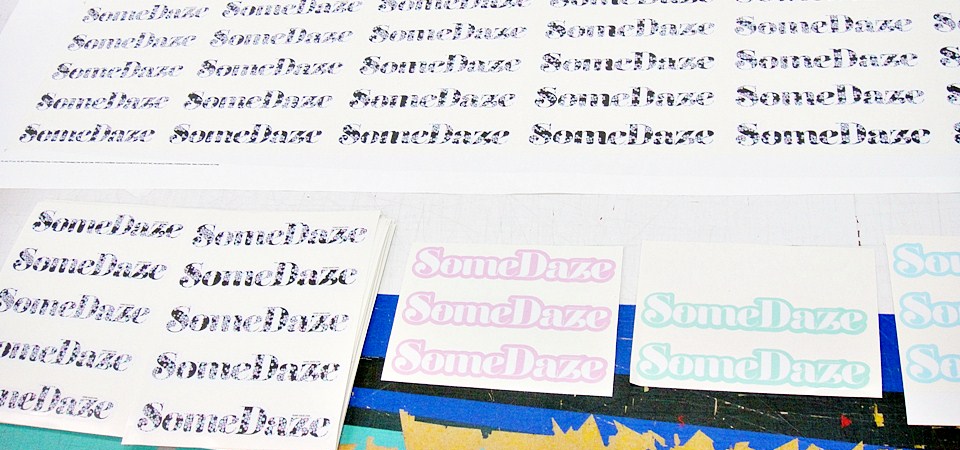 SomeDaze SomeDaze SomeDaze SomeDaze SomeDaze
SomeDaze SomeDaze SomeDaze SomeDaze SomeDaze
SomeDaze SomeDaze SomeDaze SomeDaze SomeDaze
SomeDaze SomeDaze SomeDaze SomeDaze SomeDaze
SomeDaze SomeDaze SomeDaze SomeDaze SomeDaze
SomeDaze SomeDaze
SomeDaze SomeDaze
SomeDaze SomeDaze
SomeDaze SomeDaze
SomeDaze SomeDaze
SomeDaze
SomeDaze
SomeDaze
SomeDaze
SomeDaze